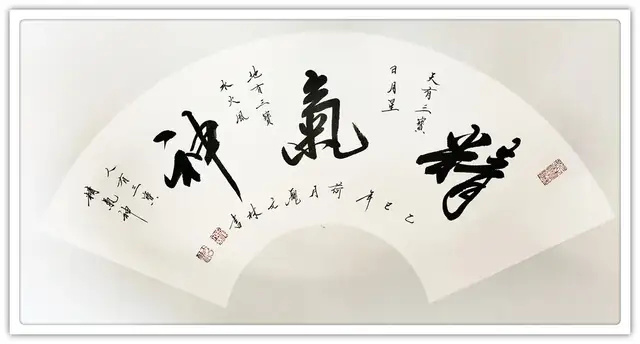 精
天有三寶
日月星
氣
地有三寶
水火風
神
人有三寶
精氣神
己巳年荷月元林書